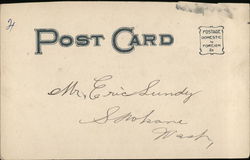 POST CARD
POSTAGE
DOMESTIC 1c
FOREIGN 2c
Mr. Eric Sundy
Spokane
Wash,